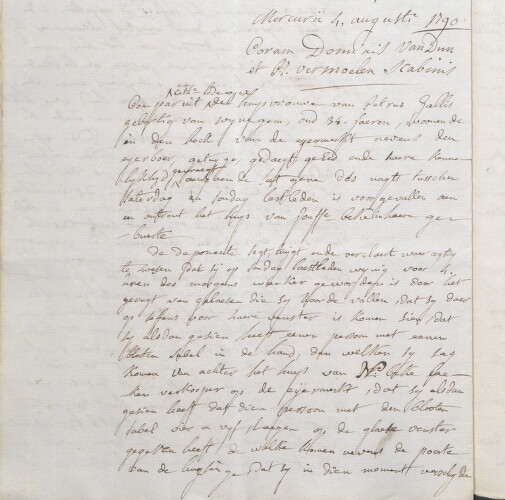 Mercurii 4 augusti 1790
Coram Dominis Van Dun
et Ph. Vermoelen Scabinis
Comparuit de huysvrouwe van Petrus Gallis
gebortig van Wyneghem, oud 34 jaeren, woonende
in den hoek van de eyermerkt nevens den
eyerboer, getuyge, gedaegt, geëed ende
gevraegt
aengaende het gene des nagts tusschen
saturdag en sondag lestleden is voorgevallen aen
en ontrent het huys van jouffe
buerte
De deponente segt, tuygt ende verclaert waeragtig
te wesen, dat sy op sondag lastleden wynig voor 4
uren des morgens wacker geworden is door het
gerugt van gelaesen die sy hoorde vallen, dat sy daer
op voor haere venster is komen sien, dat
sy alsdan gesien heeft eenen persoon met eenen
blooten sabel in de hand, den welken sy sag
komen van achter het huys van
verkooper op de eyermerkt, dat sy alsdan
gesien heeft dat dien persoon met den blooten
sabel vier a vyf slaegen op de glaese venster
gegeven heeft de welke komen nevens de poorte
van de dat sy in dien moment